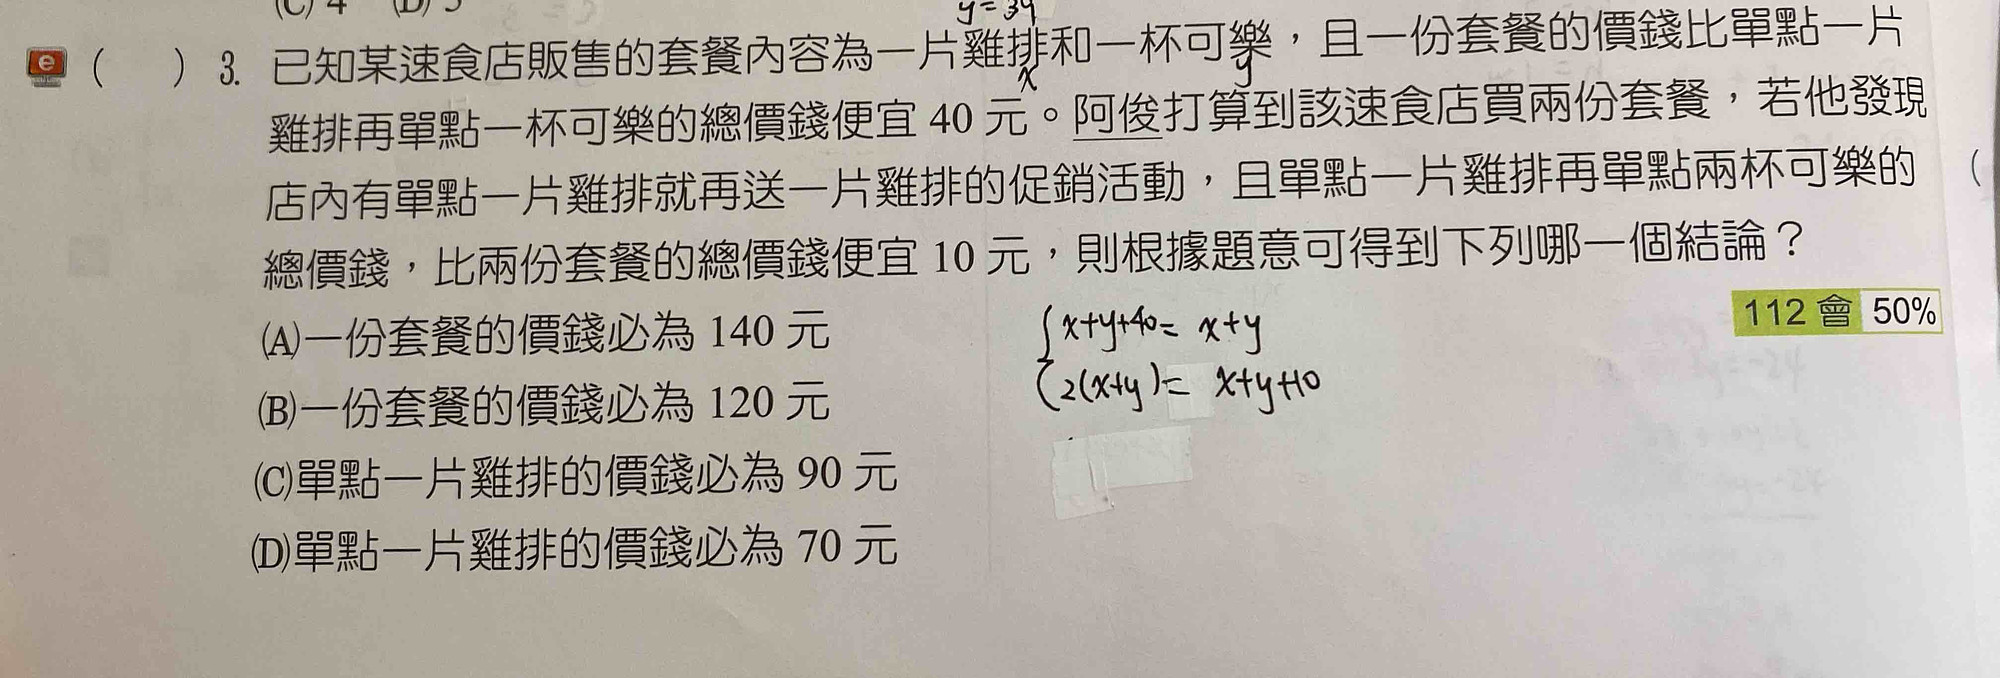 (C) 4 (D) 5
y=34
( ) 3. 已知某速食店販售的套餐內容為一片雞排和一杯可樂，且一份套餐的價錢比單點一片
x y
雞排再單點一杯可樂的總價錢便宜 40 元。阿俊打算到該速食店買兩份套餐，若他發現
店內有單點一片雞排就再送一片雞排的促銷活動，且單點一片雞排再單點兩杯可樂的
總價錢，比兩份套餐的總價錢便宜 10 元，則根據題意可得到下列哪一個結論？
112 會 50%
(A)一份套餐的價錢必為 140 元
(B)一份套餐的價錢必為 120 元
(C)單點一片雞排的價錢必為 90 元
(D)單點一片雞排的價錢必為 70 元
x+y+40= x+y
2(x+y)= x+y+10